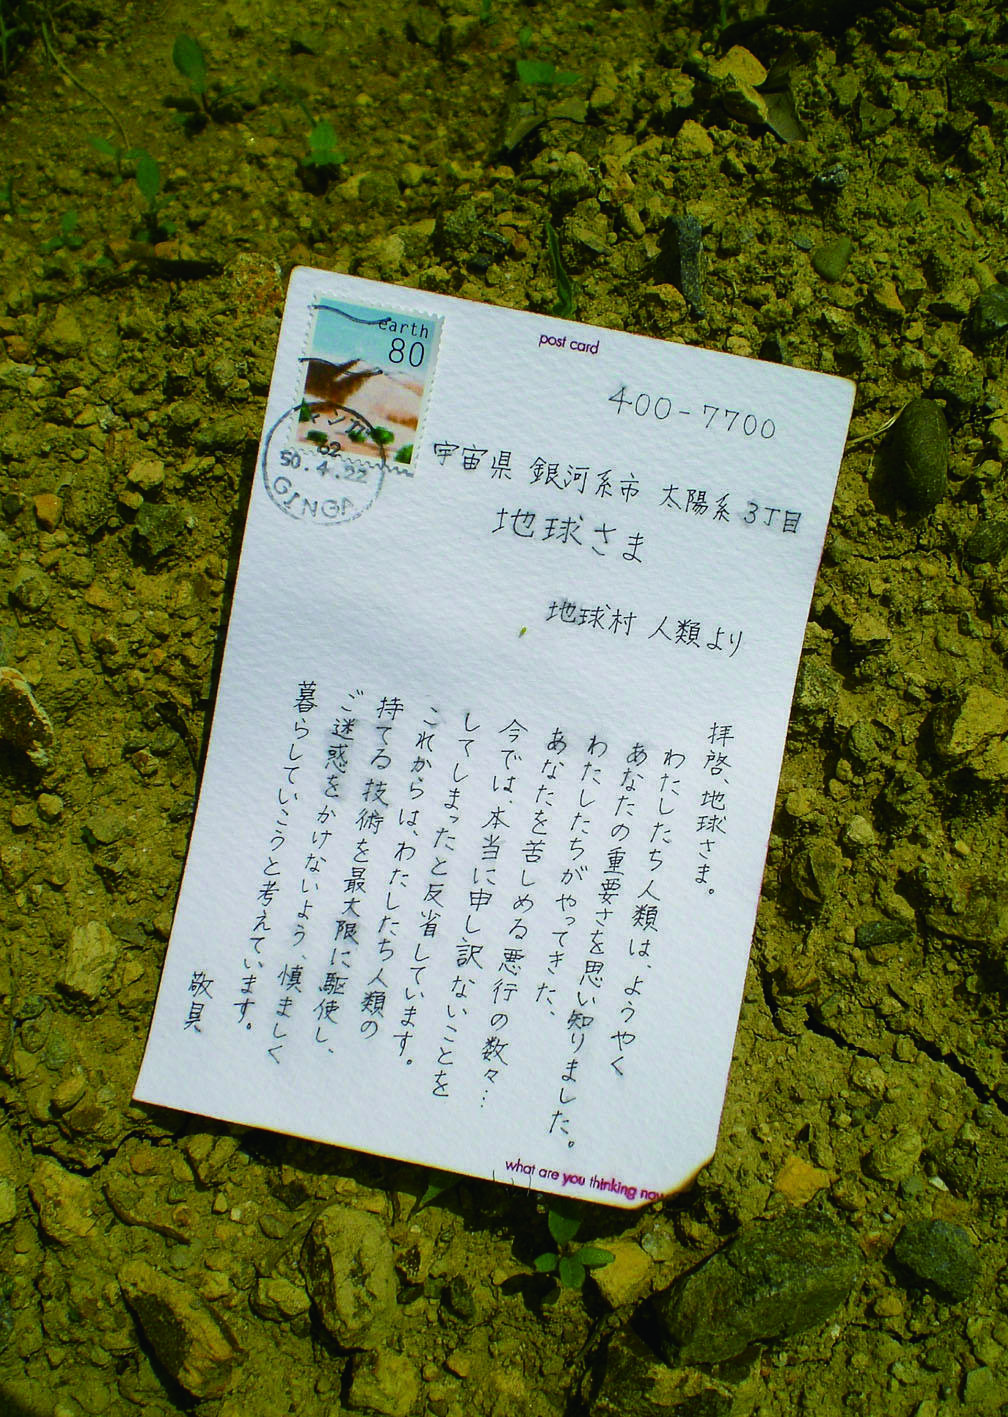 earth
80
ギンガ
62
50.4.22
GINGA
post card
400-7700
宇宙県 銀河系市 太陽系3丁目
地球さま
地球村 人類より
拝啓、地球さま。
わたしたち人類は、ようやく
あなたの重要さを思い知りました。
わたしたちがやってきた、
あなたを苦しめる悪行の数々…
今では、本当に申し訳ないことを
してしまったと反省しています。
これからは、わたしたち人類の
持てる技術を最大限に駆使し、
ご迷惑をかけないよう、慎ましく
暮らしていこうと考えています。
敬具
what are you thinking now